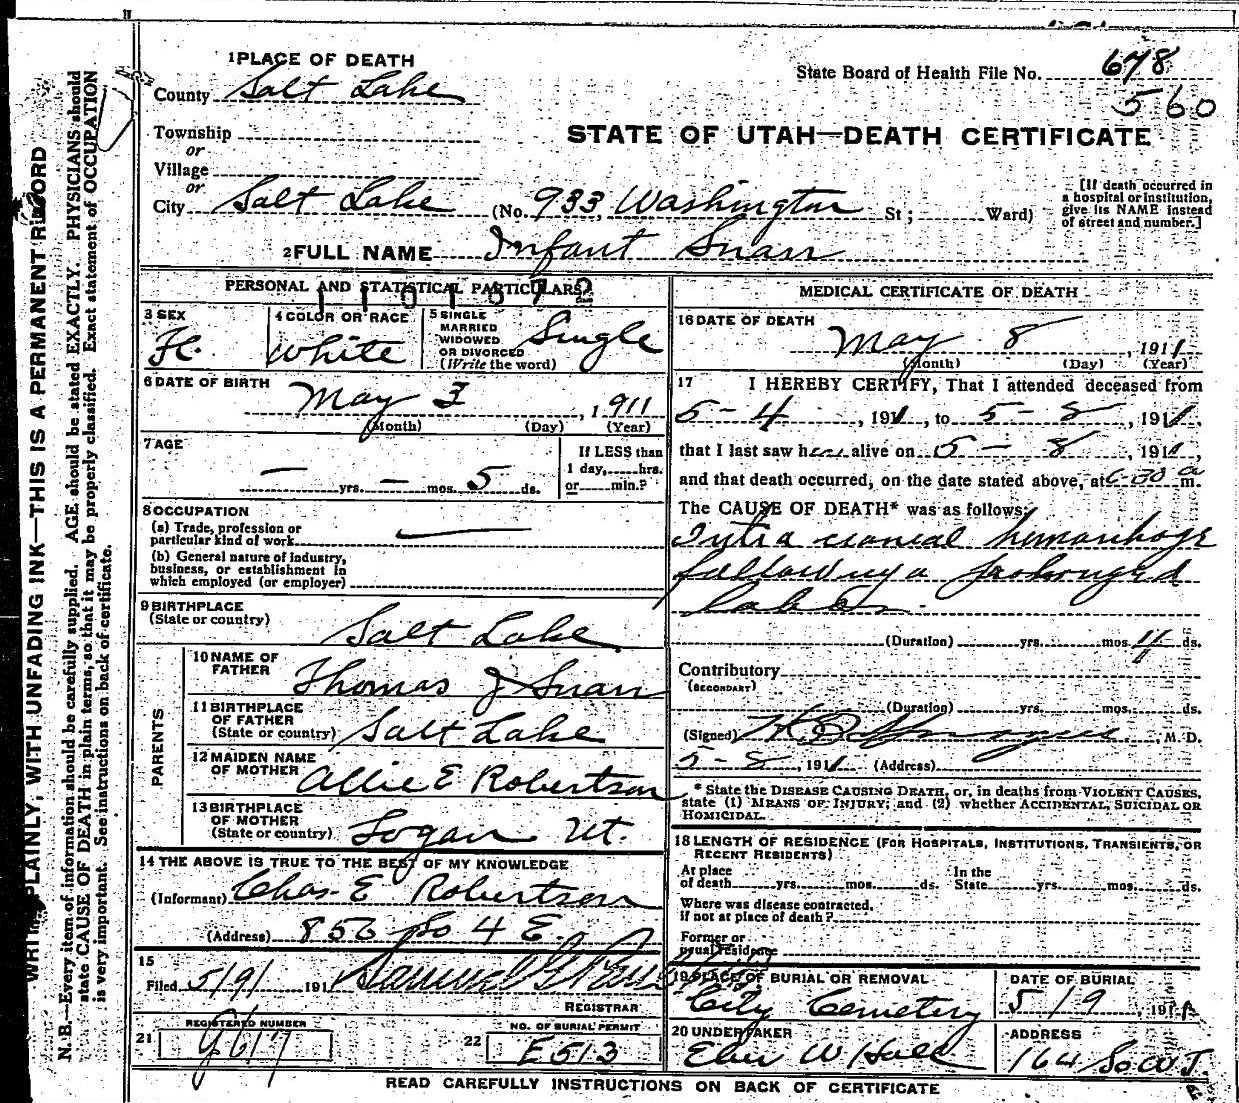 1 PLACE OF DEATH
County Salt Lake
State Board of Health File No. 678
560
Township
or
Village
or
City Salt Lake (No. 933, Washington St; Ward)
STATE OF UTAH—DEATH CERTIFICATE
[If death occurred in a hospital or institution, give its NAME instead of street and number.]
2 FULL NAME Infant Snarr
PERSONAL AND STATISTICAL PARTICULARS
3 SEX
4 COLOR OR RACE White
5 SINGLE MARRIED WIDOWED OR DIVORCED (Write the word) Single
6 DATE OF BIRTH
May 3, 1911
(Month) (Day) (Year)
7 AGE
— yrs. — mos. 5 ds.
If LESS than 1 day, hrs. or min.?
8 OCCUPATION
(a) Trade, profession or particular kind of work —
(b) General nature of industry, business, or establishment in which employed (or employer)
9 BIRTHPLACE
(State or country) Salt Lake
PARENTS
10 NAME OF FATHER Thomas J Snarr
11 BIRTHPLACE OF FATHER (State or country) Salt Lake
12 MAIDEN NAME OF MOTHER Allie E Robertson
13 BIRTHPLACE OF MOTHER (State or country) Logan Ut.
14 THE ABOVE IS TRUE TO THE BEST OF MY KNOWLEDGE
(Informant) Chas. E Robertson
(Address) So 4 E.
15
Filed 5/9/ 191 Samuel G
REGISTRAR
REGISTERED NUMBER
21 9617
NO. OF BURIAL PERMIT
22 E513
MEDICAL CERTIFICATE OF DEATH
16 DATE OF DEATH
May 8, 1911
(Month) (Day) (Year)
17 I HEREBY CERTIFY, That I attended deceased from
5-4, 1911, to 5-8, 1911,
that I last saw her alive on 5-8, 1911,
and that death occurred, on the date stated above, at 6-30 a m.
The CAUSE OF DEATH* was as follows:
Intra cranial hemorrhage
following a prolonged
labor.
(Duration) yrs. mos. 4 ds.
Contributory
(SECONDARY)
(Duration) yrs. mos. ds.
(Signed) M. D.
5-8, 1911 (Address)
* State the DISEASE CAUSING DEATH, or, in deaths from VIOLENT CAUSES, state (1) MEANS OF INJURY; and (2) whether ACCIDENTAL, SUICIDAL OR HOMICIDAL.
18 LENGTH OF RESIDENCE (FOR HOSPITALS, INSTITUTIONS, TRANSIENTS, OR RECENT RESIDENTS)
At place of death yrs. mos. ds. In the State yrs. mos. ds.
Where was disease contracted, if not at place of death?
Former or usual residence
19 PLACE OF BURIAL OR REMOVAL City Cemetery
DATE OF BURIAL 5/9 1911
20 UNDERTAKER Eber W Hall
ADDRESS 164 So W T
READ CAREFULLY INSTRUCTIONS ON BACK OF CERTIFICATE
WRITE PLAINLY, WITH UNFADING INK—THIS IS A PERMANENT RECORD
N. B.—Every item of information should be carefully supplied. AGE should be stated EXACTLY. PHYSICIANS should
state CAUSE OF DEATH in plain terms, so that it may be properly classified. Exact statement of OCCUPATION
is very important. See instructions on back of certificate.